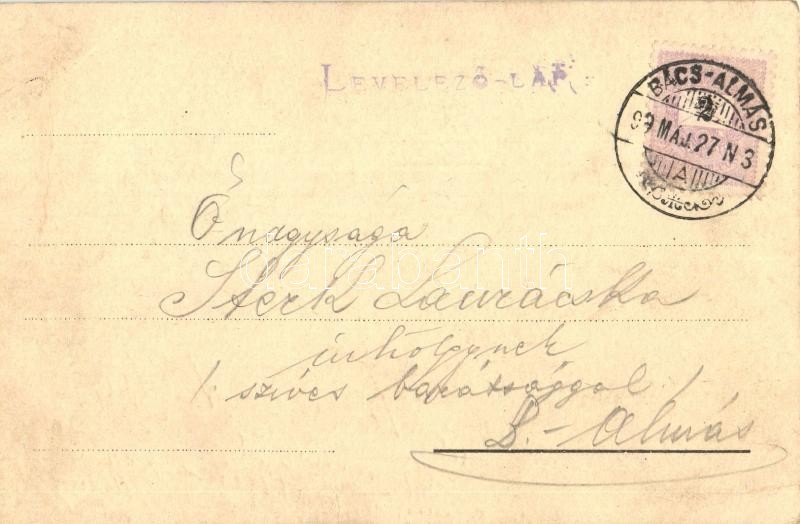 LEVELEZŐ-LAP
BÁCS-ALMÁS
99 MÁJ. 27 N 3
A
Ő nagysága
Sterk Laurácska
úrhölgynek
/: szíves barátsággal /
B.-Almás